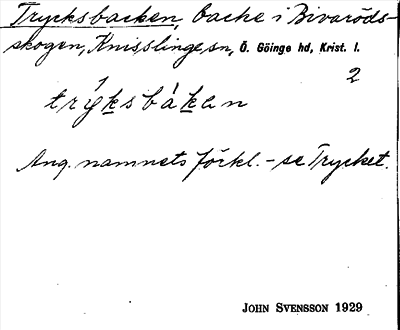 Trycksbacken, backe i Bivaröds-
skogen, Knisslinge sn, Ö. Göinge hd, Krist. l.
2
trýksbàkan
Ang. namnets förkl. - se Trycket.
JOHN SVENSSON 1929